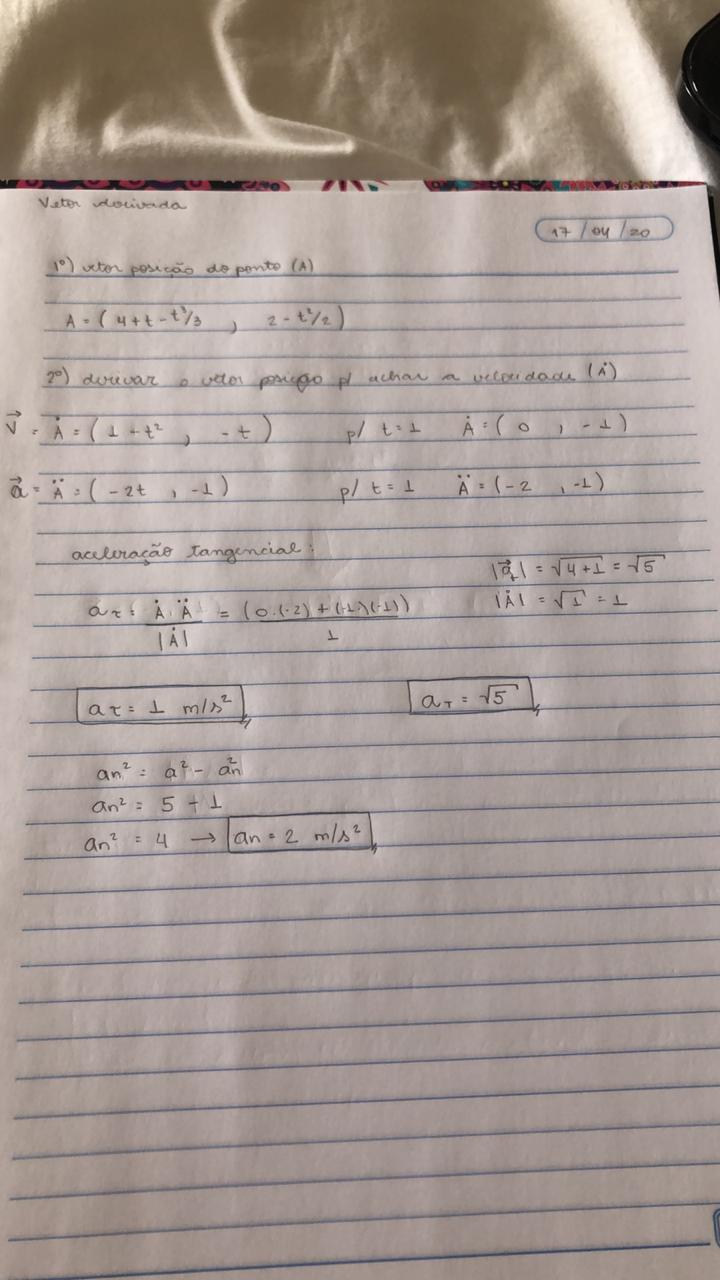 Vetor derivada
17/04/20
1º) vetor posição do ponto (A)
A = ( 4+t-t³/3 , 2-t²/2 )
2º) derivar o vetor posição p/ achar a velocidade (Ȧ)
v⃗ = Ȧ = ( 1 + t² , - t ) p/ t = 1 Ȧ = ( 0 , - 1 )
a⃗ = Ä = ( - 2t , -1 ) p/ t = 1 Ä = (-2 , -1)
aceleração tangencial:
|a⃗ₜ| = √4+1 = √5
aτ = Ȧ . Ä / |Ȧ| = (0.(-2) + (-1)(-1)) / 1
|Ȧ| = √1 = 1
aτ = 1 m/s²
aT = √5
an² = a² - an²
an² = 5 + 1
an² = 4 → an = 2 m/s²